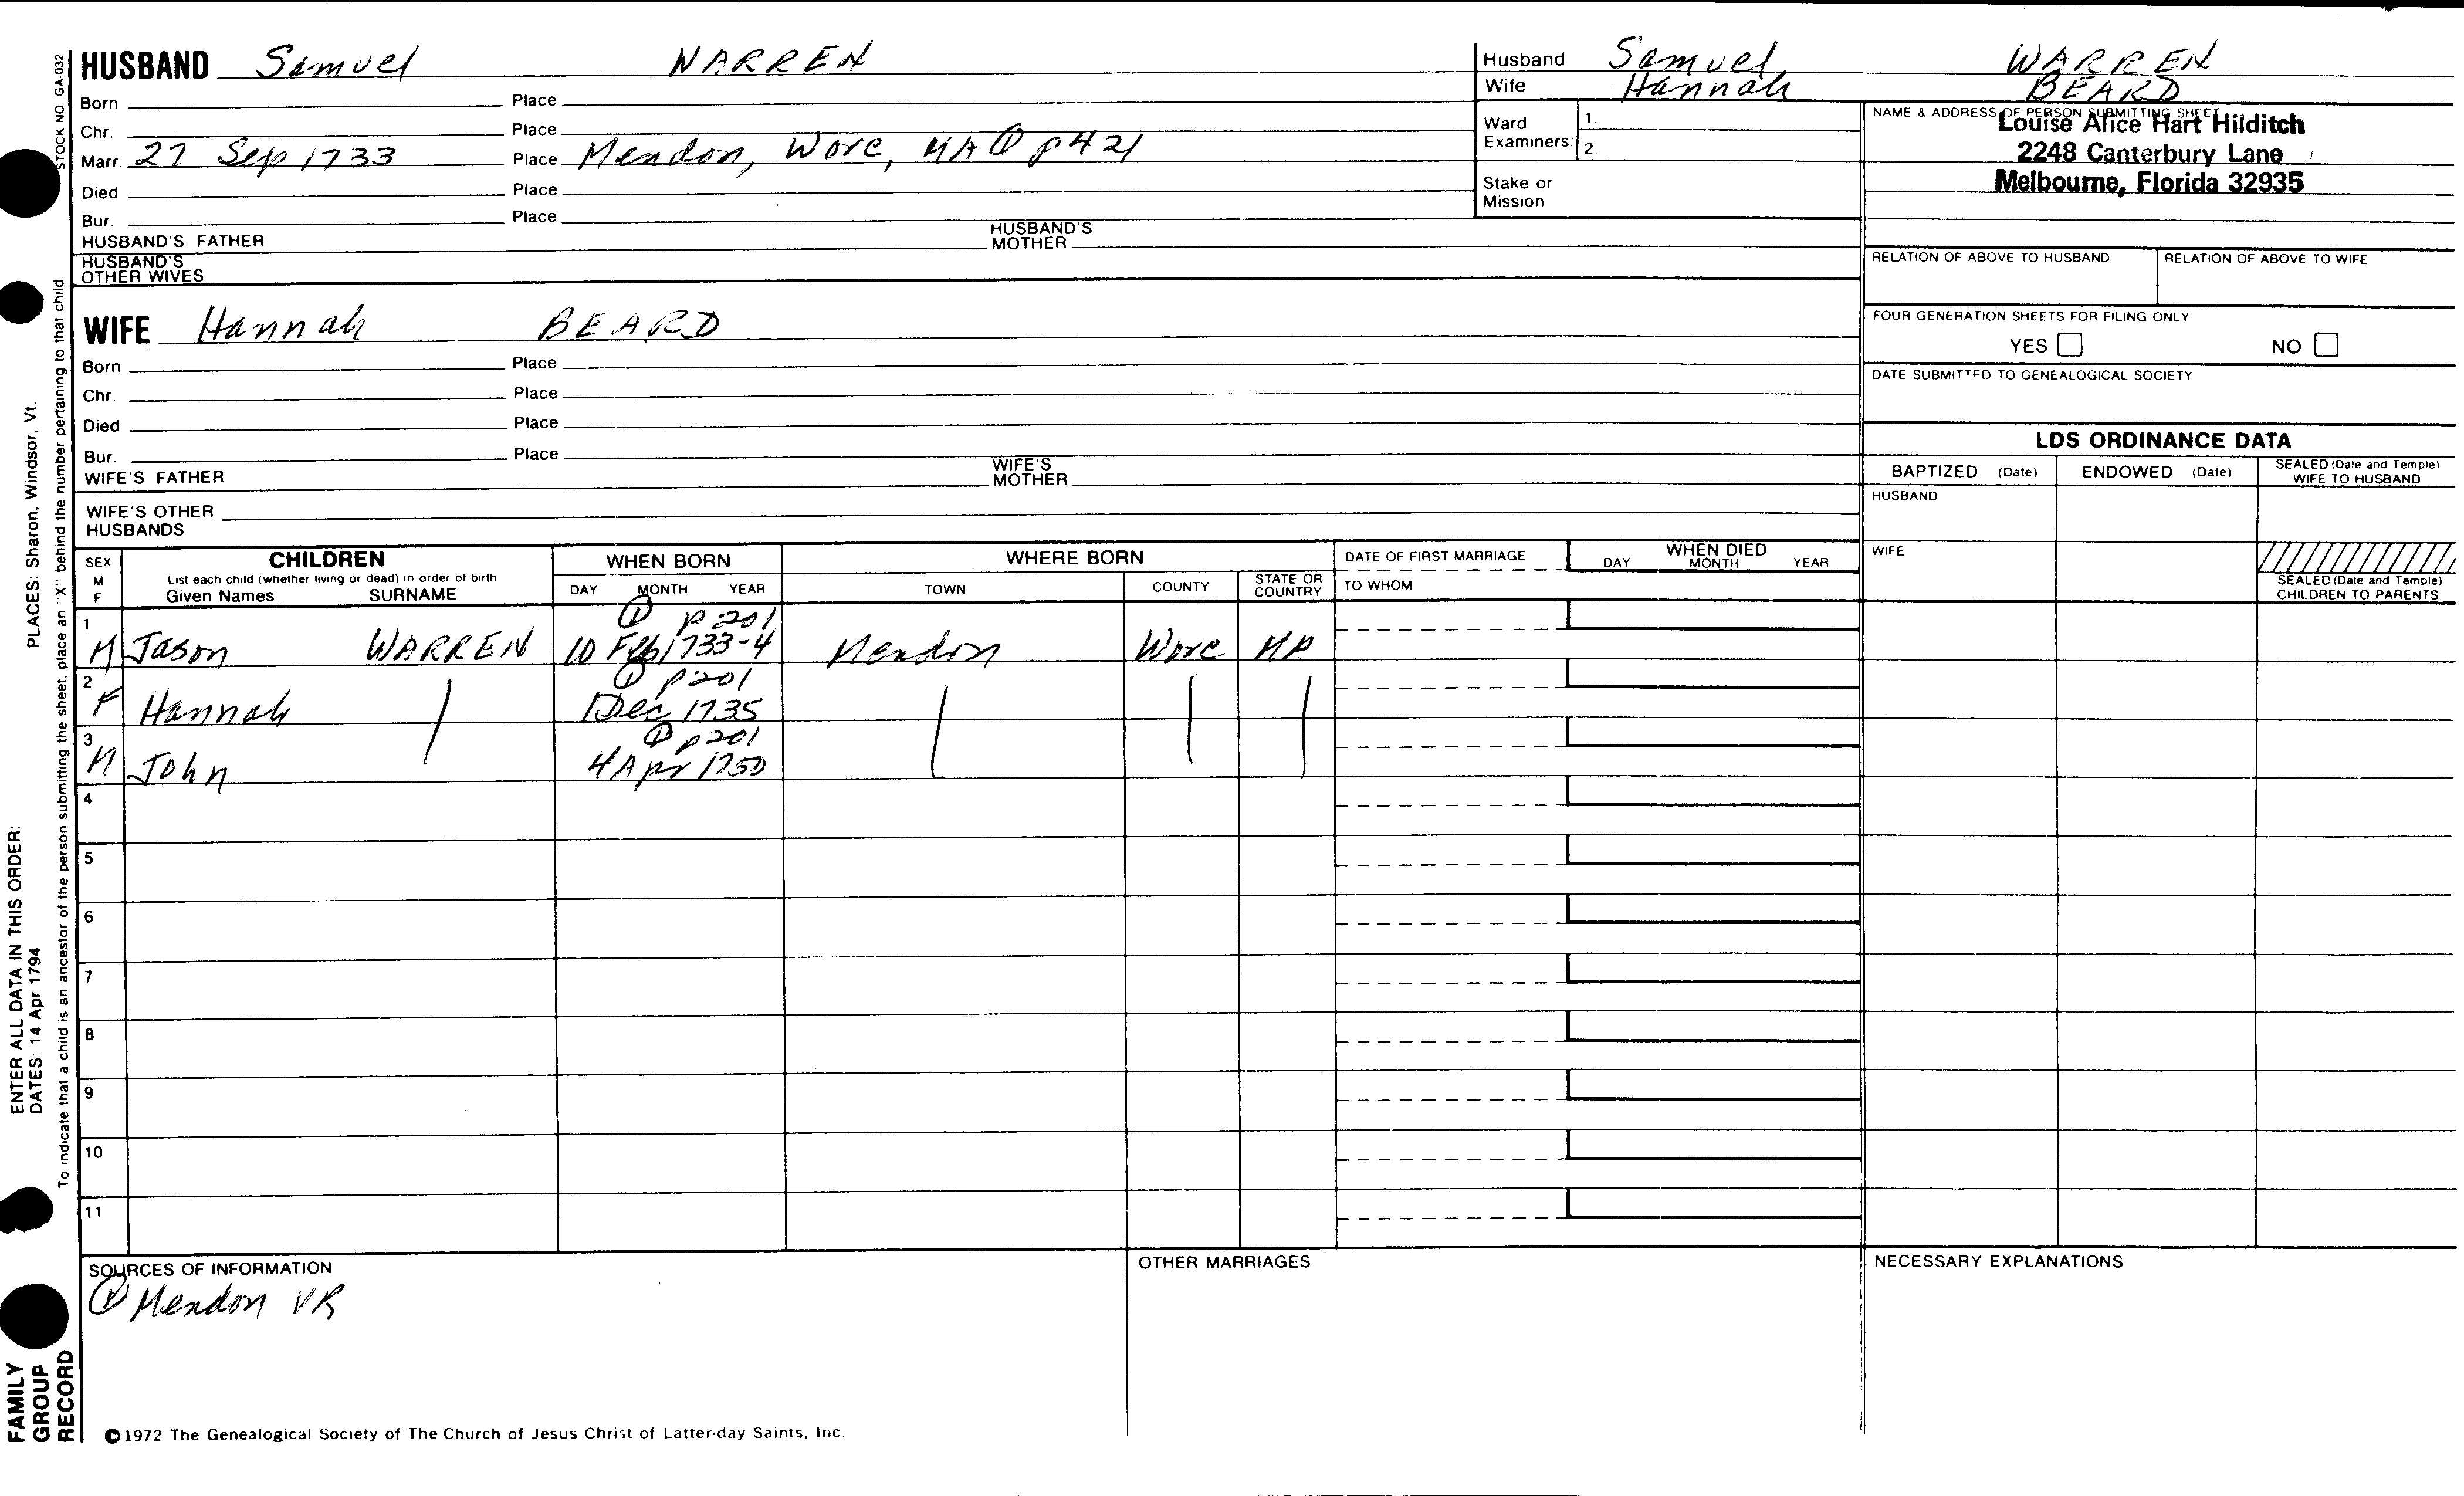 HUSBAND Samuel WARREN
Born Place
Chr. Place
Marr. 27 Sep 1733 Place Mendon, Worc, MA ① p421
Died Place
Bur. Place
HUSBAND'S FATHER HUSBAND'S MOTHER
HUSBAND'S OTHER WIVES
Husband Samuel WARREN
Wife Hannah BEARD
Ward Examiners 1.
2.
Stake or Mission
NAME & ADDRESS OF PERSON SUBMITTING SHEET
Louise Alice Hart Hilditch
2248 Canterbury Lane
Melbourne, Florida 32935
RELATION OF ABOVE TO HUSBAND RELATION OF ABOVE TO WIFE
FOUR GENERATION SHEETS FOR FILING ONLY
YES NO
DATE SUBMITTED TO GENEALOGICAL SOCIETY
WIFE Hannah BEARD
Born Place
Chr. Place
Died Place
Bur. Place
WIFE'S FATHER WIFE'S MOTHER
WIFE'S OTHER HUSBANDS
LDS ORDINANCE DATA
BAPTIZED (Date) ENDOWED (Date) SEALED (Date and Temple) WIFE TO HUSBAND
HUSBAND
WIFE
SEALED (Date and Temple) CHILDREN TO PARENTS
SEX M F
CHILDREN
List each child (whether living or dead) in order of birth
Given Names SURNAME
WHEN BORN
DAY MONTH YEAR
WHERE BORN
TOWN COUNTY STATE OR COUNTRY
DATE OF FIRST MARRIAGE
TO WHOM
WHEN DIED
DAY MONTH YEAR
1 ① p201
M Jason WARREN 10 Feb 1733-4 Mendon Worc MA
2 ① p201
F Hannah Dec 1735
3 ① p201
M John 4 Apr 1750
4
5
6
7
8
9
10
11
SOURCES OF INFORMATION
① Mendon VR
OTHER MARRIAGES
NECESSARY EXPLANATIONS
©1972 The Genealogical Society of The Church of Jesus Christ of Latter-day Saints, Inc.
STOCK NO GA-032
To indicate that a child is an ancestor of the person submitting the sheet, place an "X" behind the number pertaining to that child
PLACES: Sharon, Windsor, Vt.
ENTER ALL DATA IN THIS ORDER:
DATES: 14 Apr 1794
FAMILY
GROUP
RECORD